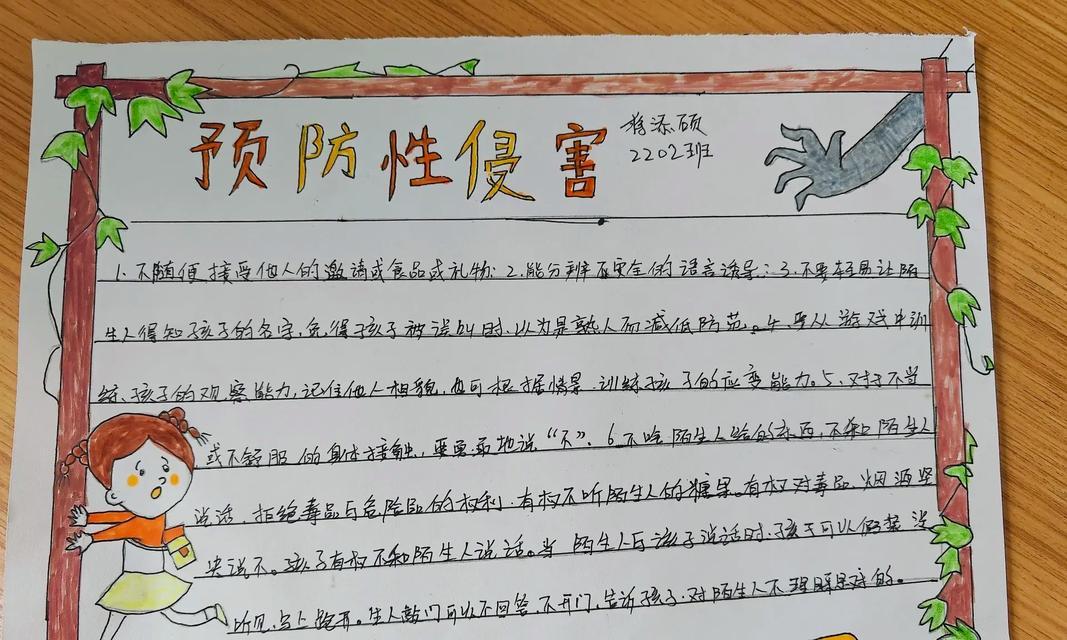 预防性侵害
添硕
2202班
1.不随便接受他人的邀请或食品或礼物；2.能分辨不安全的语言诱导；3.不要轻易让陌
生人得知孩子的名字，免得孩子被误叫时，以为是熟人而减低防范。4.要从游戏中训
练孩子的观察能力，记住他人相貌，也可根据情景训练孩子的应变能力。5.对于不当
或不舒服的身体接触，要勇敢地说“不”。6不吃陌生人给的东西，不和陌生人
说话，拒绝毒品与危险品的权利。有权不听陌生人的糖果。有权对毒品、烟酒坚
决说不。孩子有权不和陌生人说话。当陌生人与孩子说话时，孩子可以假装没
听见，马上跑开。生人敲门可以不回答，不开门，告诉孩子，对陌生人不理睬是对的。